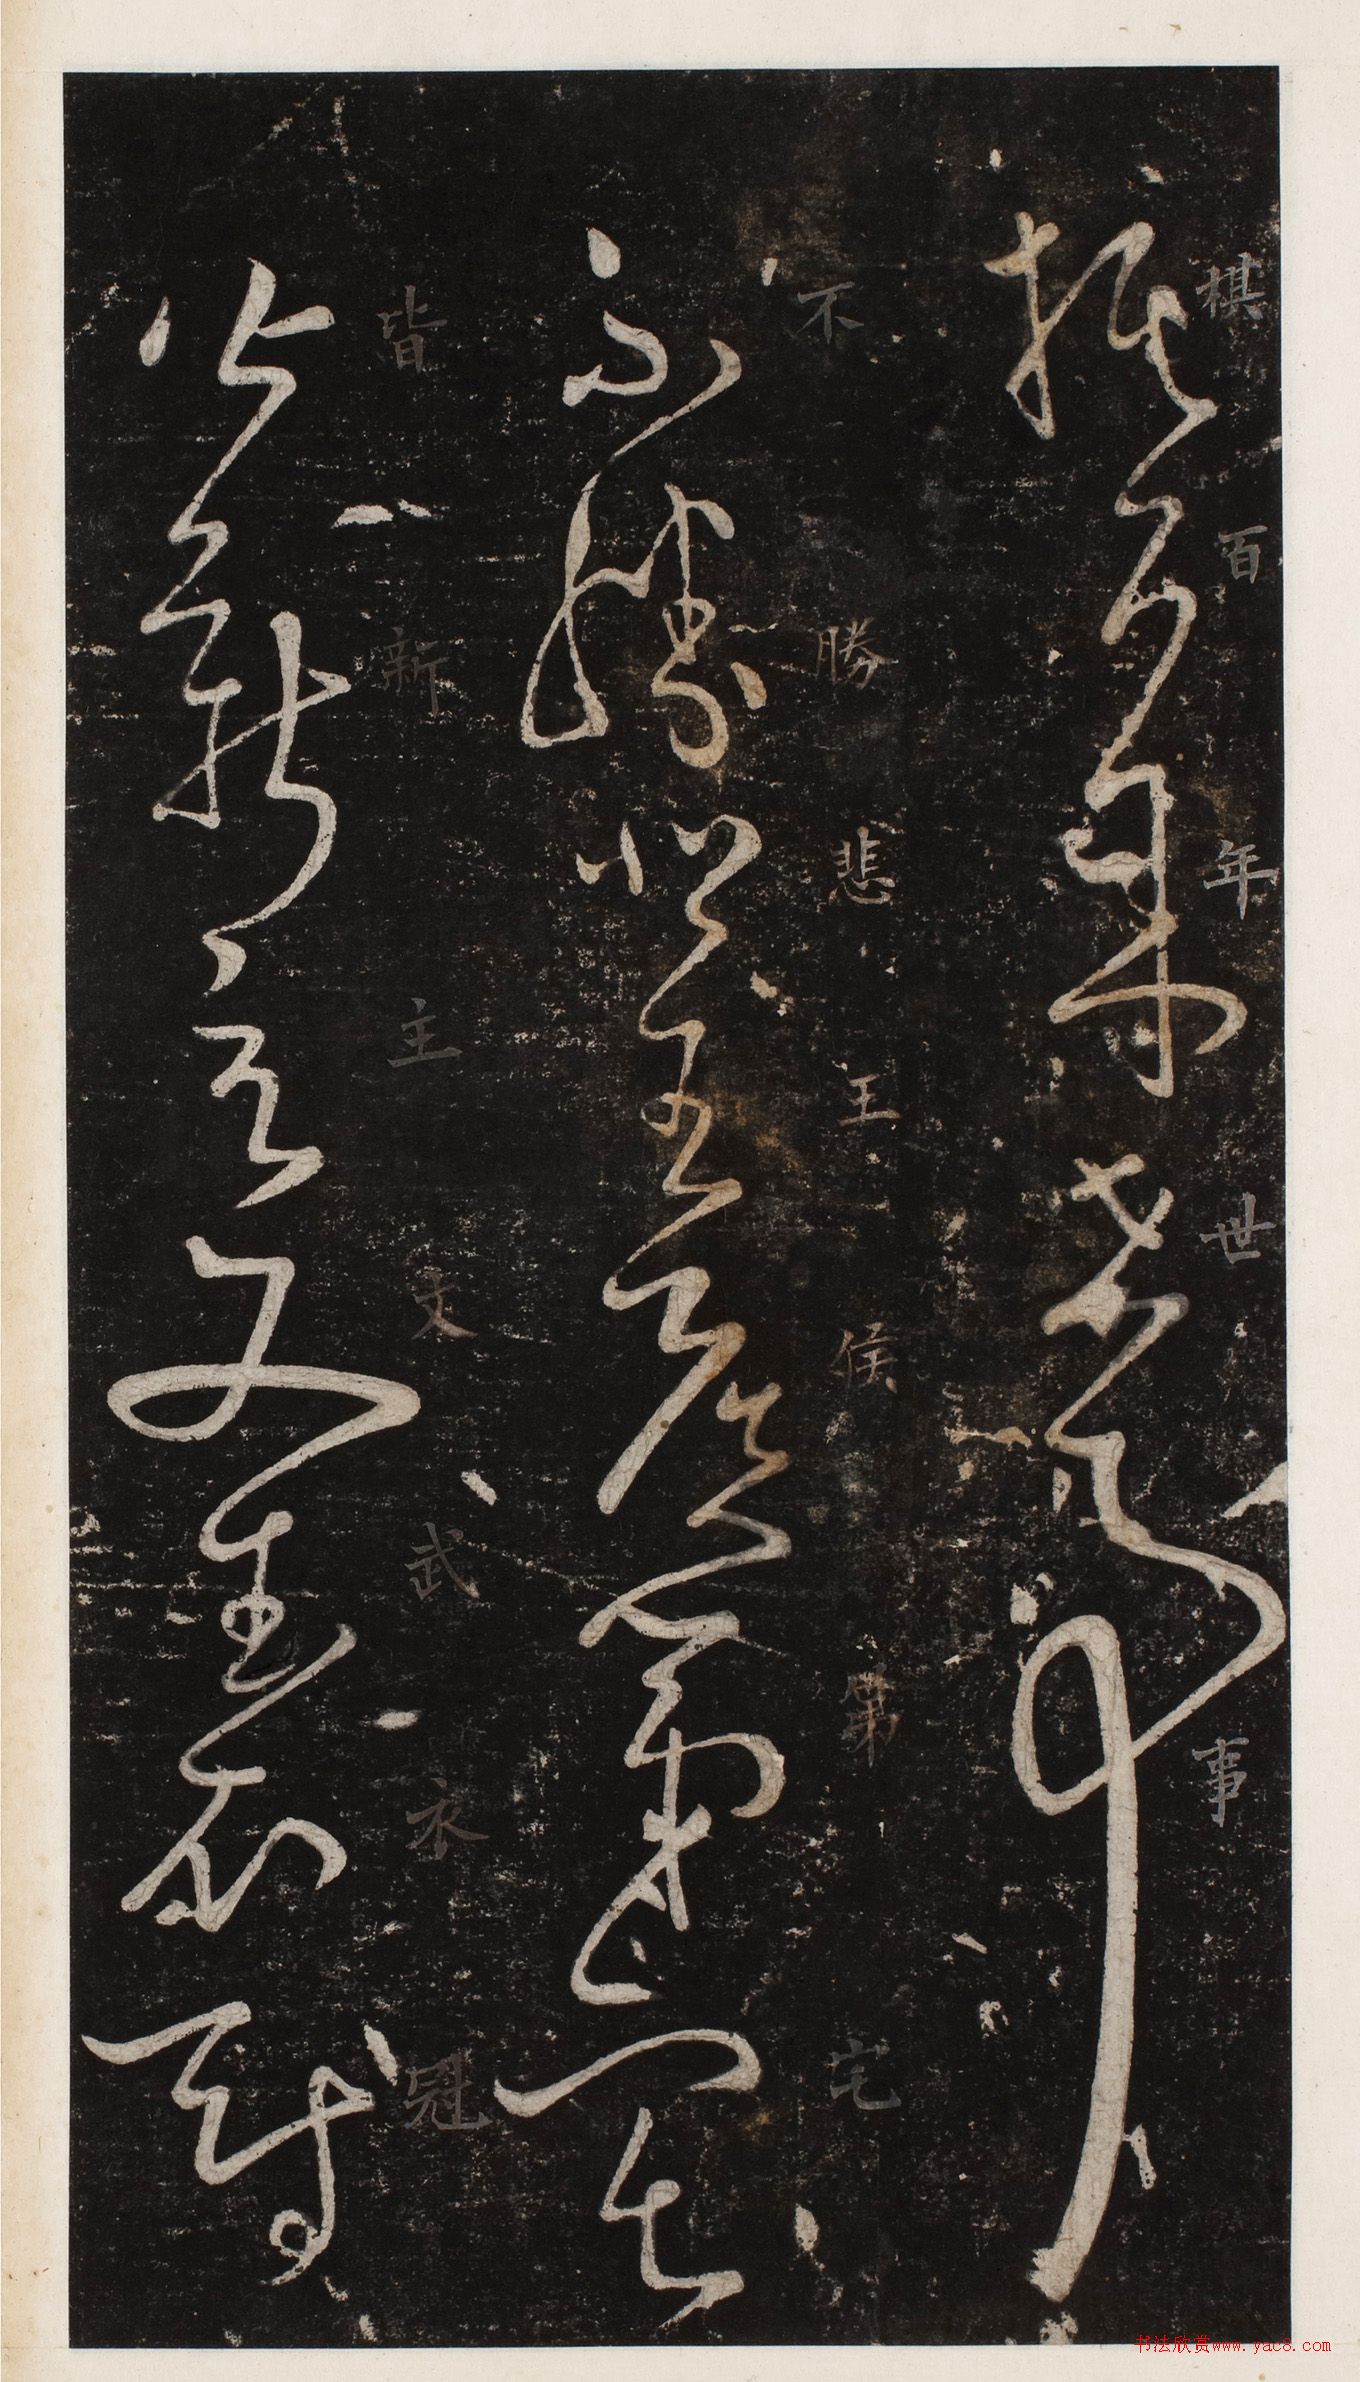 棋百年世事
不勝悲王侯第宅
皆新主文武衣冠
书法欣赏www.yac8.com